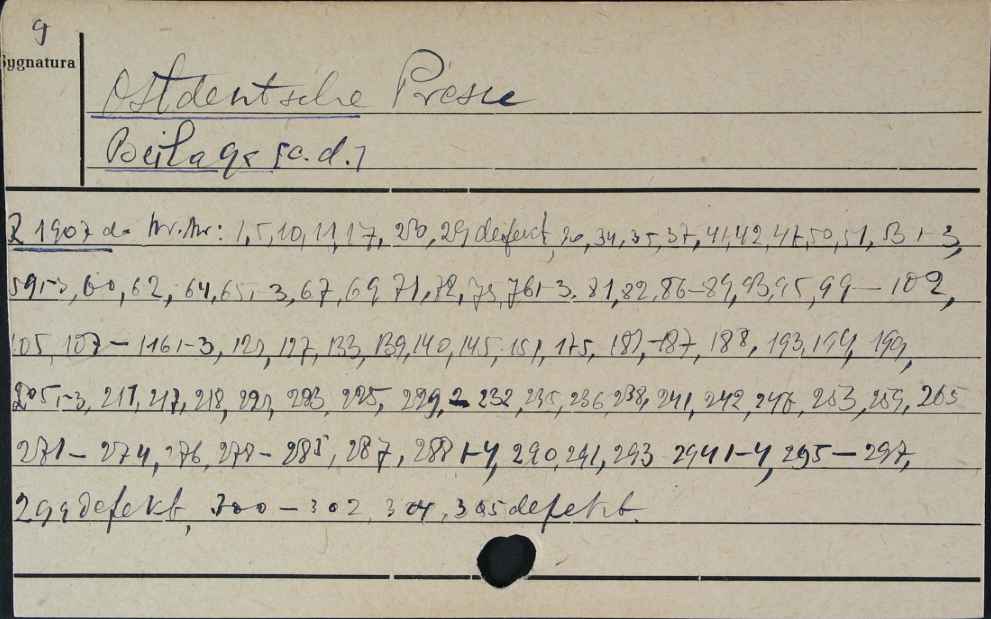 9
Sygnatura
Ostdeutsche Presse
Beilage [c.d.]
Z 1907 d. Nr. Nr: 1, 5, 10, 11, 17, 28, 29 defect, 30, 34, 35, 37, 41, 42, 47, 50, 51, 53 1-3,
59 1-3, 60, 62, 64, 65 1-3, 67, 69, 71, 72, 75, 76 1-3, 81, 82, 86-89, 93, 95, 99-102,
105, 107-116 1-3, 121, 127, 133, 139, 140, 145, 151, 175, 181,-187, 188, 193, 194, 199,
205 1-3, 211, 217, 218, 221, 223, 225, 229, 232, 235, 236, 238, 241, 242, 246, 253, 259, 265
271-274, 276, 278-285, 287, 288 1-4, 290, 291, 293 294 1-4, 295-297,
299 defekt, 300-302, 304, 305 defekt.